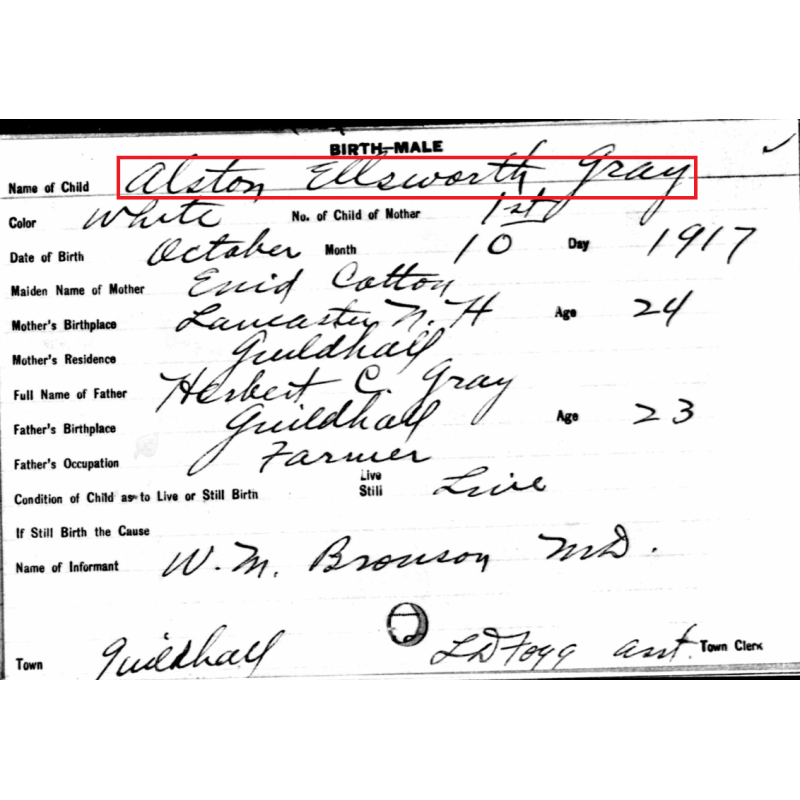 BIRTH—MALE
Name of Child Alston Ellsworth Gray
Color White No. of Child of Mother 1st
Date of Birth October Month 10 Day 1917
Maiden Name of Mother Enid Cotton
Mother's Birthplace Lancaster N. H Age 24
Mother's Residence Guildhall
Full Name of Father Herbert C. Gray
Father's Birthplace Guildhall Age 23
Father's Occupation Farmer
Condition of Child as to Live or Still Birth Live Still Live
If Still Birth the Cause
Name of Informant W. M. Bronson MD.
Town Guildhall LD Fogg asst. Town Clerk